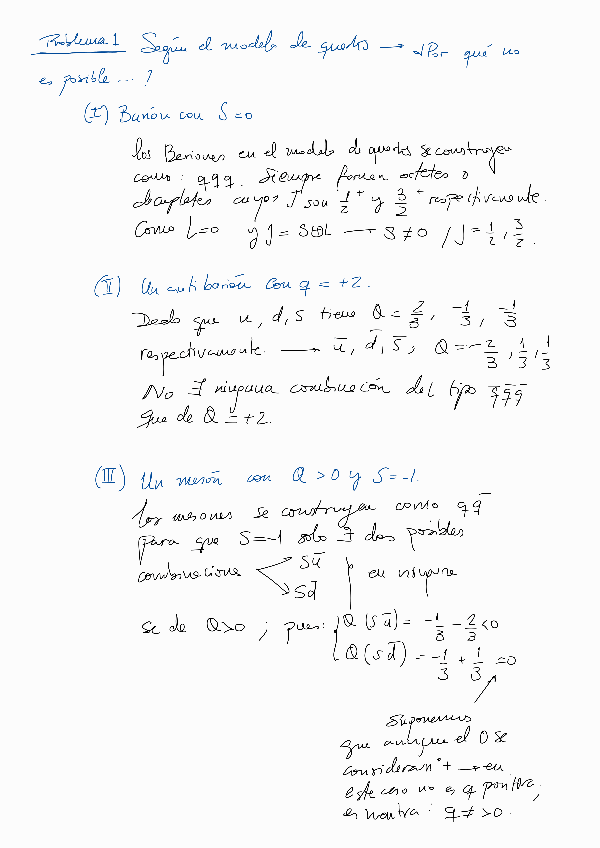 Problema 1 Según el modelo de quarks → ¿Por qué no
es posible ... ?
(I) Barión con S=0
Los Bariones en el modelo de quarks se construyen
como: qqq. Siempre forman octetes o
decupletes cuyos J son 1/2⁺ y 3/2⁺ respectivamente.
Como L=0 y J = S⊕L → S ≠ 0 / J = 1/2, 3/2.
(II) Un antibarión con q = +2.
Dado que u, d, s tiene Q = 2/3, -1/3, -1/3
respectivamente. → ū, d̄, s̄, Q = -2/3, 1/3, 1/3
No ∃ ninguna combinación del tipo q̄q̄q̄
que de Q = +2.
(III) Un mesón con Q > 0 y S = -1.
Los mesones se construyen como qq̄
Para que S=-1 solo ∃ dos posibles
combinaciones sū en ninguna
sd̄
se da Q>0 ; pues: Q(sū) = -1/3 - 2/3 < 0
Q(sd̄) = -1/3 + 1/3 = 0
Suponemos
que aunque el 0 se
considera nº + → en
este caso no es q positiva,
es neutra: q ≠ > 0.